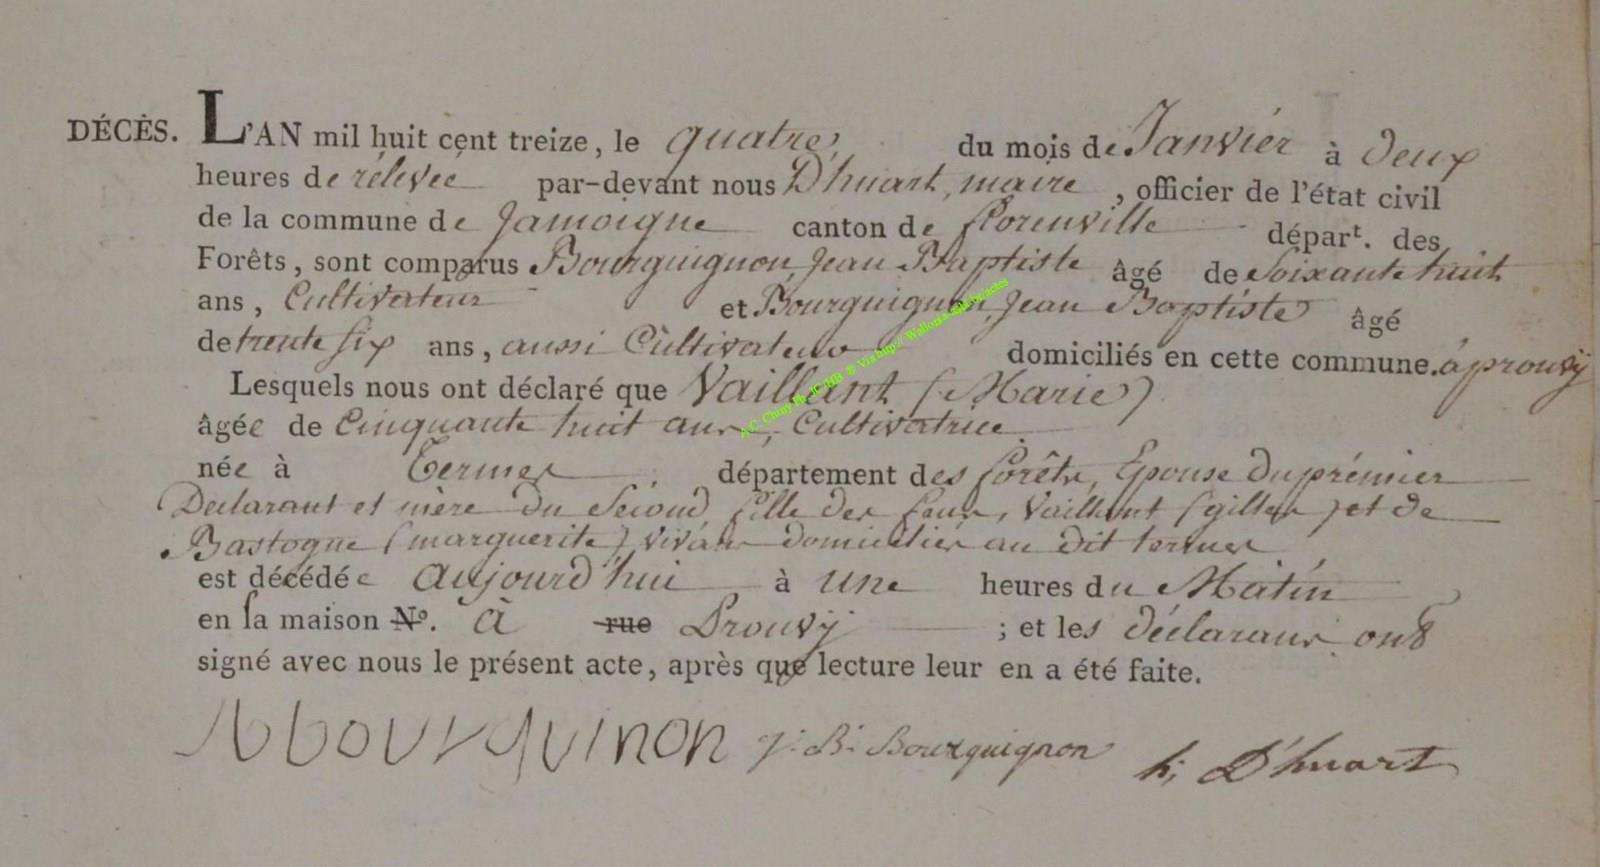 DÉCÈS. L'AN mil huit cent treize, le quatre du mois de Janviér à deux
heures de rélevée par-devant nous D'huart, maire, officier de l'état civil
de la commune de Jamoigne canton de florenvilleépart. dépar<sup>t</sup>. des
Forêts, sont comparus Bourguignon, Jean Baptiste âgé de Soixante huit
ans, Cultivateur et Bourguignon, Jean Baptiste âgé
de trente six ans, aussi Cultivateur domiciliés en cette commune. à prouvÿ
Lesquels nous ont déclaré que Vaillant (Marie)
âgée de Cinquante huit ans, Cultivatrice
née à Termes, département des forêts, Epouse du prémier
Declarant et mère du Sécond, fille des feus, Vaillant (gilles) et de
Bastogne (marguerite) vivans domiciliés au dit termes
est décédée aujourd'hui à une heures du Matin
en la maison N°. à rue Prouvÿ ; et les déclarans ont
signé avec nous le présent acte, après que lecture leur en a été faite.
Jbbourquinon J: B: Bourguignon h; D'huart
A.C. Chiny Ph. JC/HB ® Via http:// Wallonia-asbl.be/actes